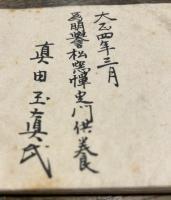 大正四年三月
爲明譽松窓禅定門供養
真田玉真氏